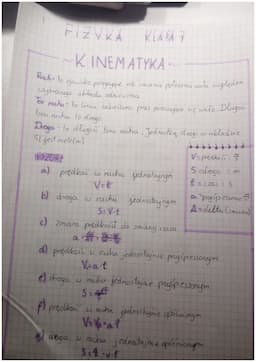 FIZYKA KLASA 7
~ KINEMATYKA ~
Ruch - to zjawisko polegające na zmianie położenia ciała względem
wybranego układu odniesienia.
Tor ruchu - to linia zakreślona przez poruszające się ciało. Długość
toru ruchu to droga.
Droga - to długość toru ruchu. Jednostką drogi w układzie
SI jest metr (m)
WZORY
a) prędkość w ruchu jednostajnym
b) droga w ruchu jednostajnym
S = V · t
c) zmiana prędkości do zmiany czasu
d) prędkość w ruchu jednostajnie przyspieszonym
V = a · t
e) droga w ruchu jednostajnie przyspieszonym
f) prędkość w ruchu jednostajnie opóźnionym
g) droga w ruchu jednostajnie opóźnionym
S droga : m
t = czas : s